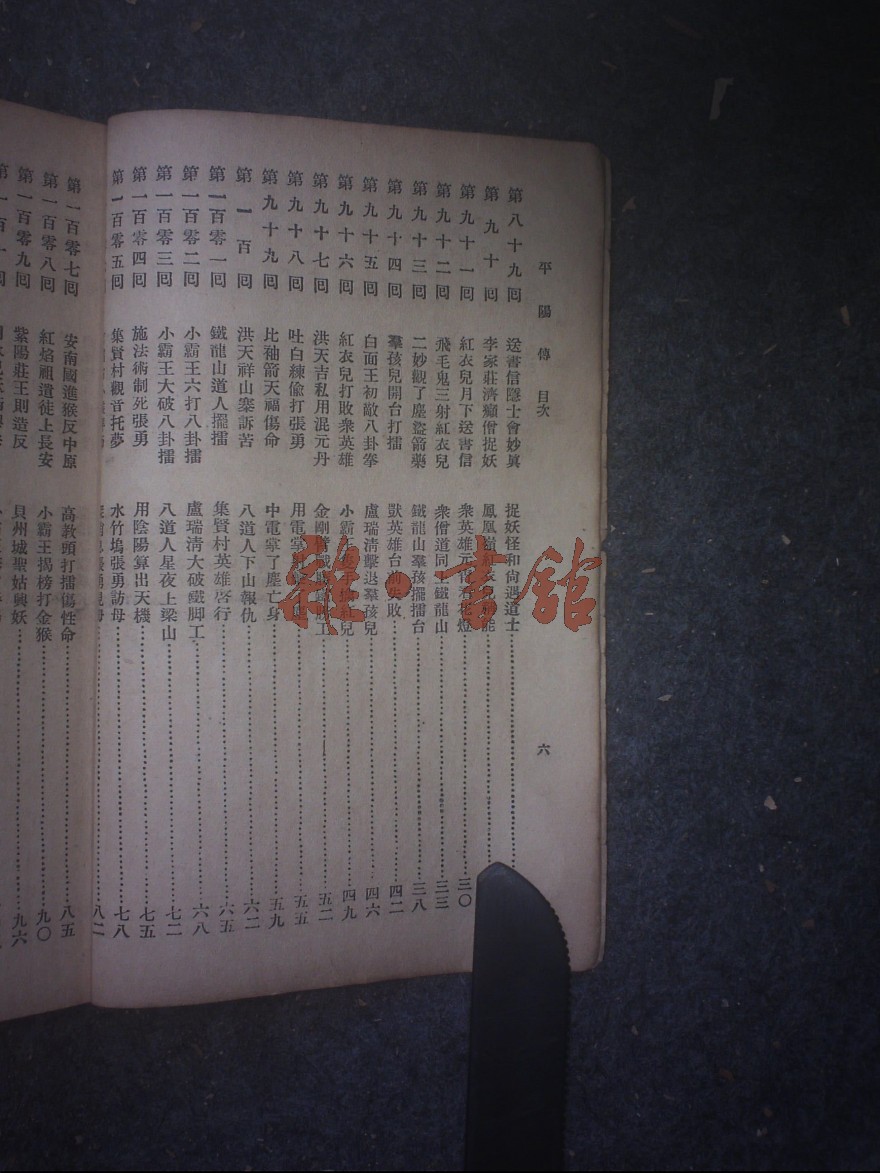 平陽傳 目次 六
第八十九回 送書信隱士會妙眞 捉妖怪和尙遇道士
第九十回 李家莊濟癲僧捉妖 鳳凰嶺紅衣兒 能
第九十一回 紅衣兒月下送書信 衆英雄元宵看花燈 三〇
第九十二回 飛毛鬼三射紅衣兒 衆僧道同上鐵龍山 三三
第九十三回 二妙觀了塵盜箭藥 鐵龍山羣孩擺擂台 三八
第九十四回 羣孩兒開台打擂 獸英雄台前失敗 四二
第九十五回 白面王初敵八卦拳 盧瑞淸擊退羣孩兒 四六
第九十六回 紅衣兒打敗衆英雄 小霸王 紅兒 四九
第九十七回 洪天吉私用混元丹 金剛 工 五二
第九十八回 吐白練偸打張勇 用電掌 五五
第九十九回 比袖箭天福傷命 中電掌了塵亡身 五九
第一百回 洪天祥山寨訴苦 八道人下山報仇 六二
第一百零一回 鐵龍山道人擺擂 集賢村英雄啓行 六五
第一百零二回 小霸王六打八卦擂 盧瑞淸大破鐵脚工 六八
第一百零三回 小霸王大破八卦擂 八道人星夜上梁山 七二
第一百零四回 施法術制死張勇 用陰陽算出天機 七五
第一百零五回 集賢村觀音托夢 水竹塢張勇訪母 七八
八二
第一百零七回 安南國進猴反中原 高敎頭打擂傷性命 八五
第一百零八回 紅焰祖遣徒上長安 小霸王揭榜打金猴 九〇
第一百零九回 紫陽莊王則造反 貝州城聖姑興妖 九六
雜·書館